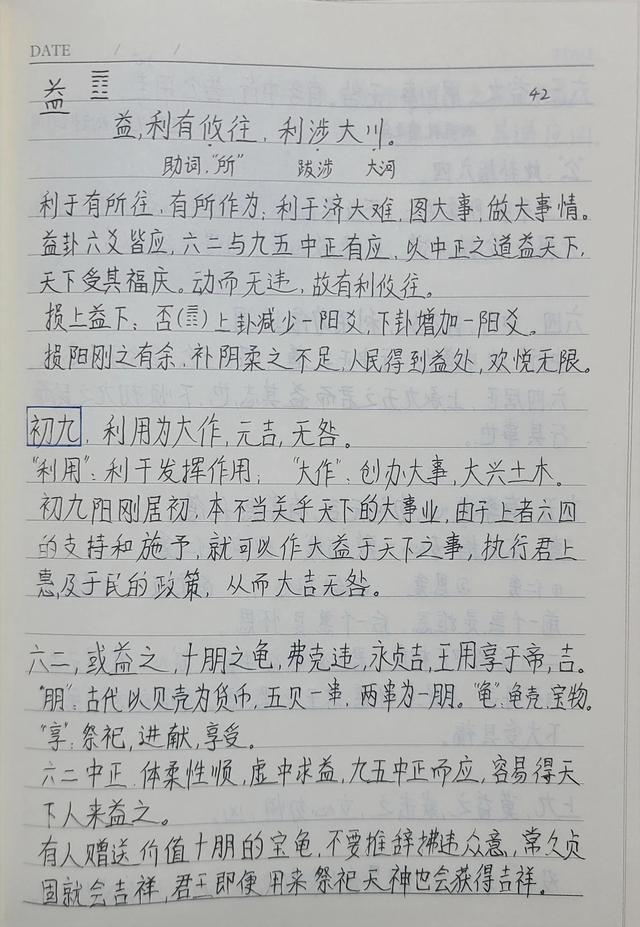 DATE / /
益 ䷩ 42
益,利有攸往,利涉大川。
助词,"所" 跋涉 大河
利于有所往,有所作为;利于济大难,图大事,做大事情。
益卦六爻皆应,六二与九五中正有应,以中正之道益天下,
天下受其福庆。动而无违,故有利攸往。
损上益下:否(䷋)上卦减少一阳爻,下卦增加一阳爻。
损阳刚之有余,补阴柔之不足,人民得到益处,欢悦无限。
初九,利用为大作,元吉,无咎。
"利用":利于发挥作用; "大作":创办大事,大兴土木。
初九阳刚居初,本不当关乎天下的大事业,由于上者六四
的支持和施予,就可以作大益于天下之事,执行君上
惠及于民的政策,从而大吉无咎。
六二,或益之,十朋之龟,弗克违,永贞吉,王用享于帝,吉。
"朋":古代以贝壳为货币,五贝一串,两串为一朋。"龟":龟壳,宝物。
"享":祭祀,进献,享受。
六二中正,体柔性顺,虚中求益,九五中正而应,容易得天
下人来益之。
有人赠送价值十朋的宝龟,不要推辞拂违众意,常久贞
固就会吉祥,君王即便用来祭祀天神也会获得吉祥。